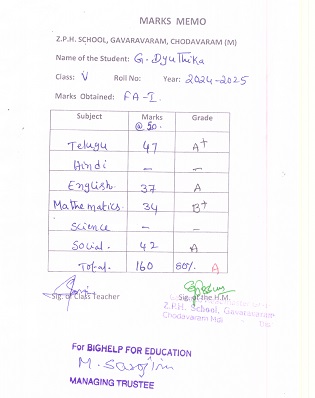 MARKS MEMO
Z.P.H. SCHOOL, GAVARAVARAM, CHODAVARAM (M)
Name of the Student: G. Dyuthika
Class: V Roll No: Year: 2024-2025
Marks Obtained: FA-I.
Subject Marks @ 50. Grade
Telugu 47 A+
Hindi – –
English 37 A
Mathematics. 34 B+
Science – –
Social. 42 A
Total. 160 80% A
Sig. of Class Teacher Sig. of the H.M.
Z.P.H. School, Gavaravaram
Chodavaram Mdl
For BIGHELP FOR EDUCATION
MANAGING TRUSTEE